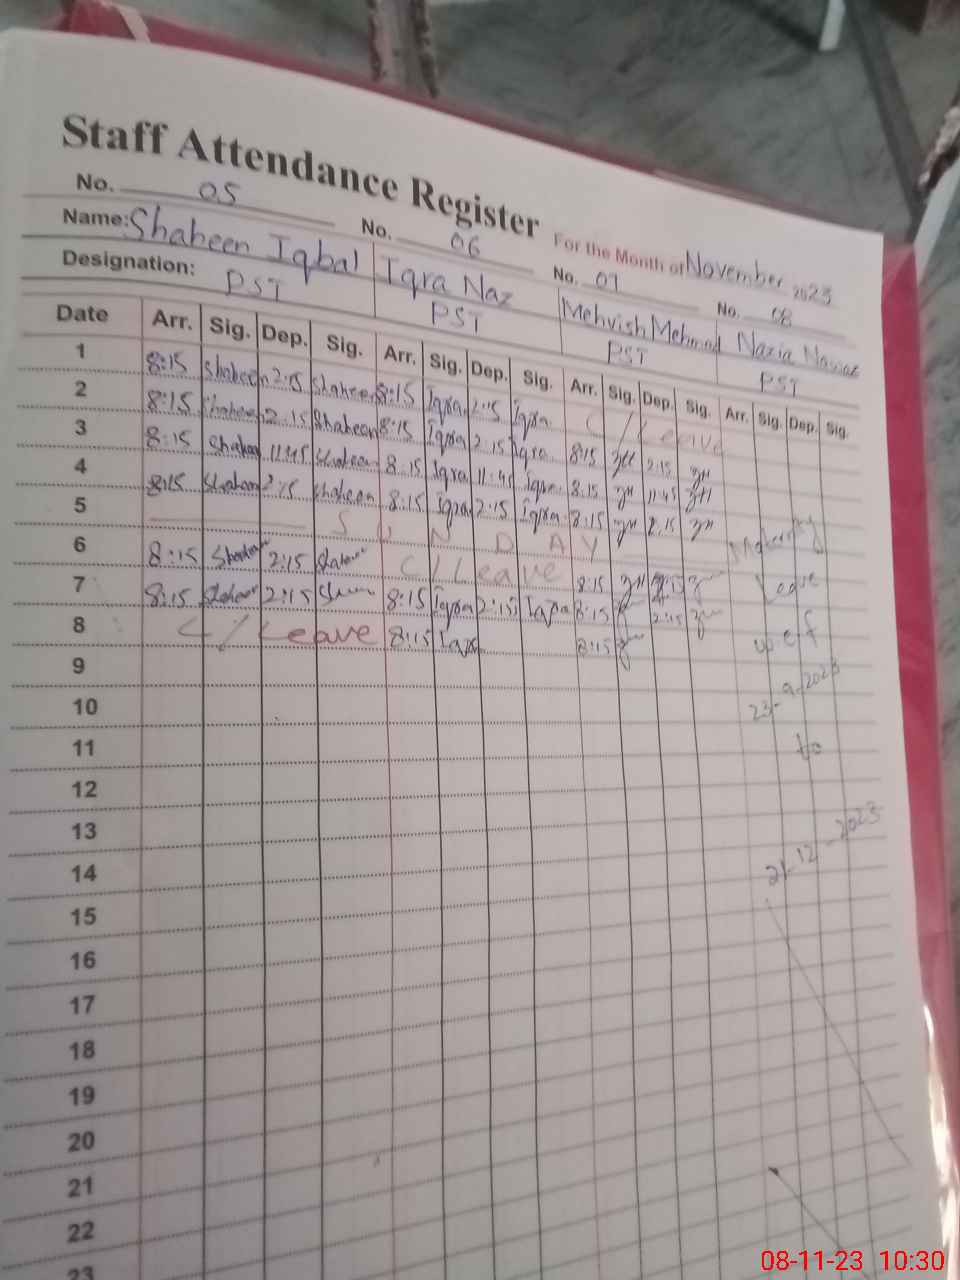 Staff Attendance Register
For the Month of November 2023
No. 05 No. 06 No. 07 No. 08
Name: Shaheen Iqbal Iqra Naz Mehvish Mehmod Nazia Nawaz
Designation: PST PST PST PST
Date Arr. Sig. Dep. Sig. Arr. Sig. Dep. Sig. Arr. Sig. Dep. Sig. Arr. Sig. Dep. Sig.
1 8:15 Shaheen 2:15 Shaheen 8:15 Iqra 2:15 Iqra C/Leave
2 8:15 Shaheen 2:15 Shaheen 8:15 Iqra 2:15 Iqra 8:15 2:15
3 8:15 Shaheen 11:45 Shaheen 8:15 Iqra 11:45 Iqra 8:15 11:45
4 8:15 Shaheen 2:15 Shaheen 8:15 Iqra 2:15 Iqra 8:15 2:15
5 SUNDAY
6 8:15 Shaheen 2:15 Shaheen C/Leave 8:15 2:15
7 8:15 Shaheen 2:15 8:15 Iqra 2:15 Iqra 8:15 2:15
8 C/Leave 8:15 Iqra 8:15
Maternity
Leave
23-9-2023
to
21-12-2023
9
10
11
12
13
14
15
16
17
18
19
20
21
22
23
08-11-23 10:30